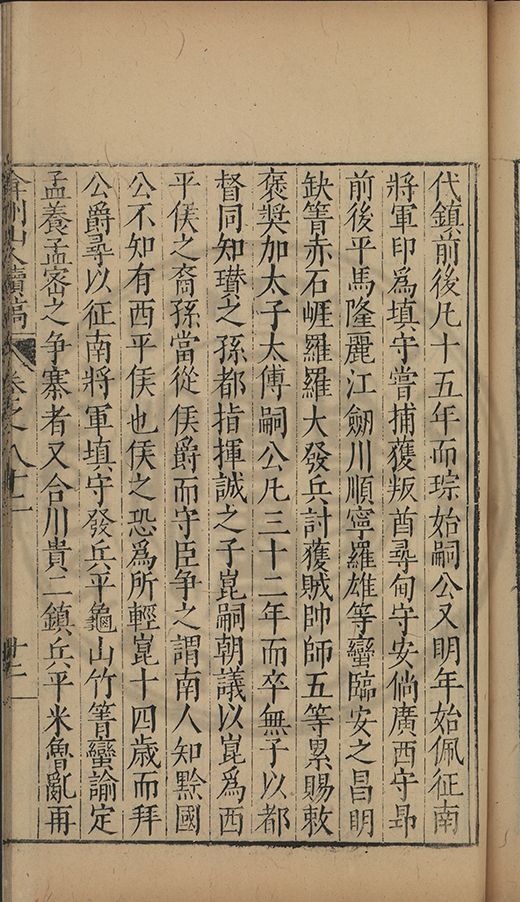 代鎮前後凡十五年而琮始嗣公又明年始佩征南
將軍印爲填守嘗捕獲叛酋尋甸守安倘廣西守昴
前後平馬隆麗江劒川順寧羅雄等蠻臨安之昌明
缺箐赤石崕羅羅大發兵討獲賊帥師五等累賜敕
褒奬加太子太傅嗣公凡三十二年而卒無子以都
督同知瓚之孫都指揮誠之子崑嗣朝議以崑爲西
平侯之裔孫當從侯爵而守臣争之謂南人知黔國
公不知有西平侯也侯之恐爲所輕崑十四歲而拜
公爵尋以征南將軍填守發兵平龜山竹箐蠻諭定
孟養孟密之争寨者又合川貴二鎮兵平米魯亂再
弇州山人續稿 卷之八十二 十二